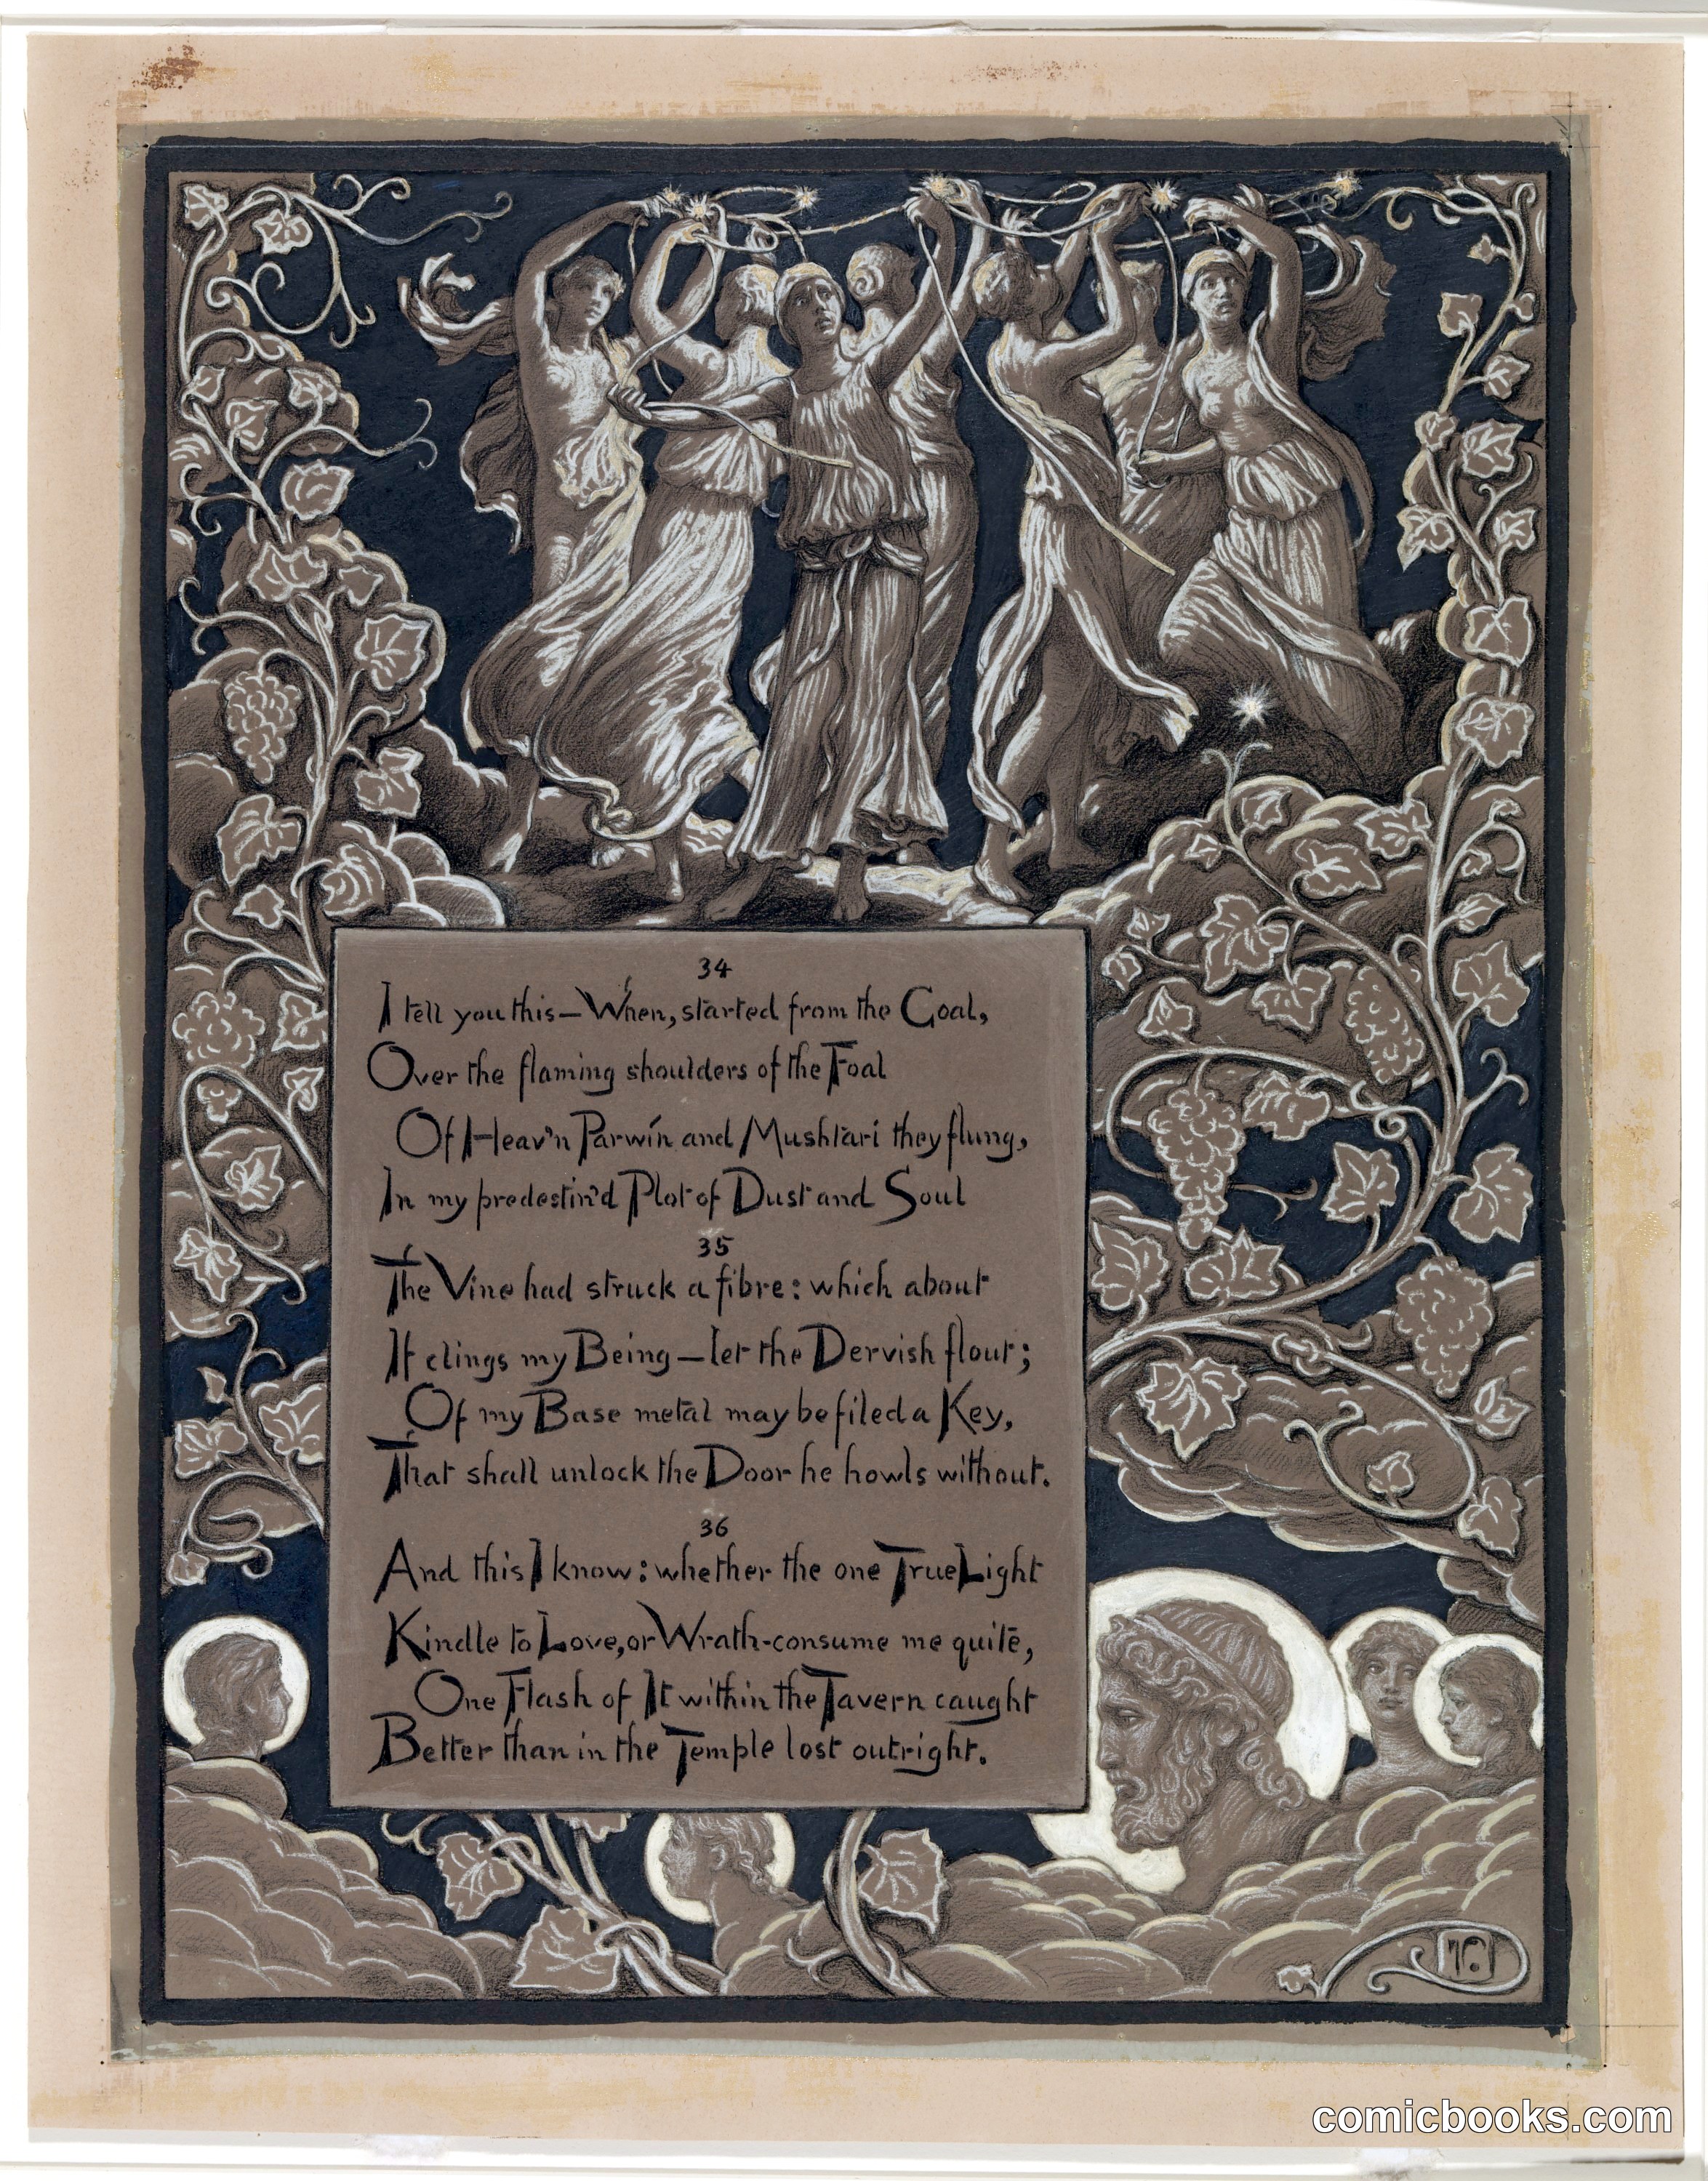 34
I tell you this—When, started from the Goal,
Over the flaming shoulders of the Foal
Of Heav'n Parwín and Mushtari they flung,
In my predestin'd Plot of Dust and Soul
35
The Vine had struck a fibre: which about
If clings my Being—let the Dervish flout;
Of my Base metal may be filed a Key,
That shall unlock the Door he howls without.
36
And this I know: whether the one True Light
Kindle to Love, or Wrath-consume me quite,
One Flash of It within the Tavern caught
Better than in the Temple lost outright.
comicbooks.com